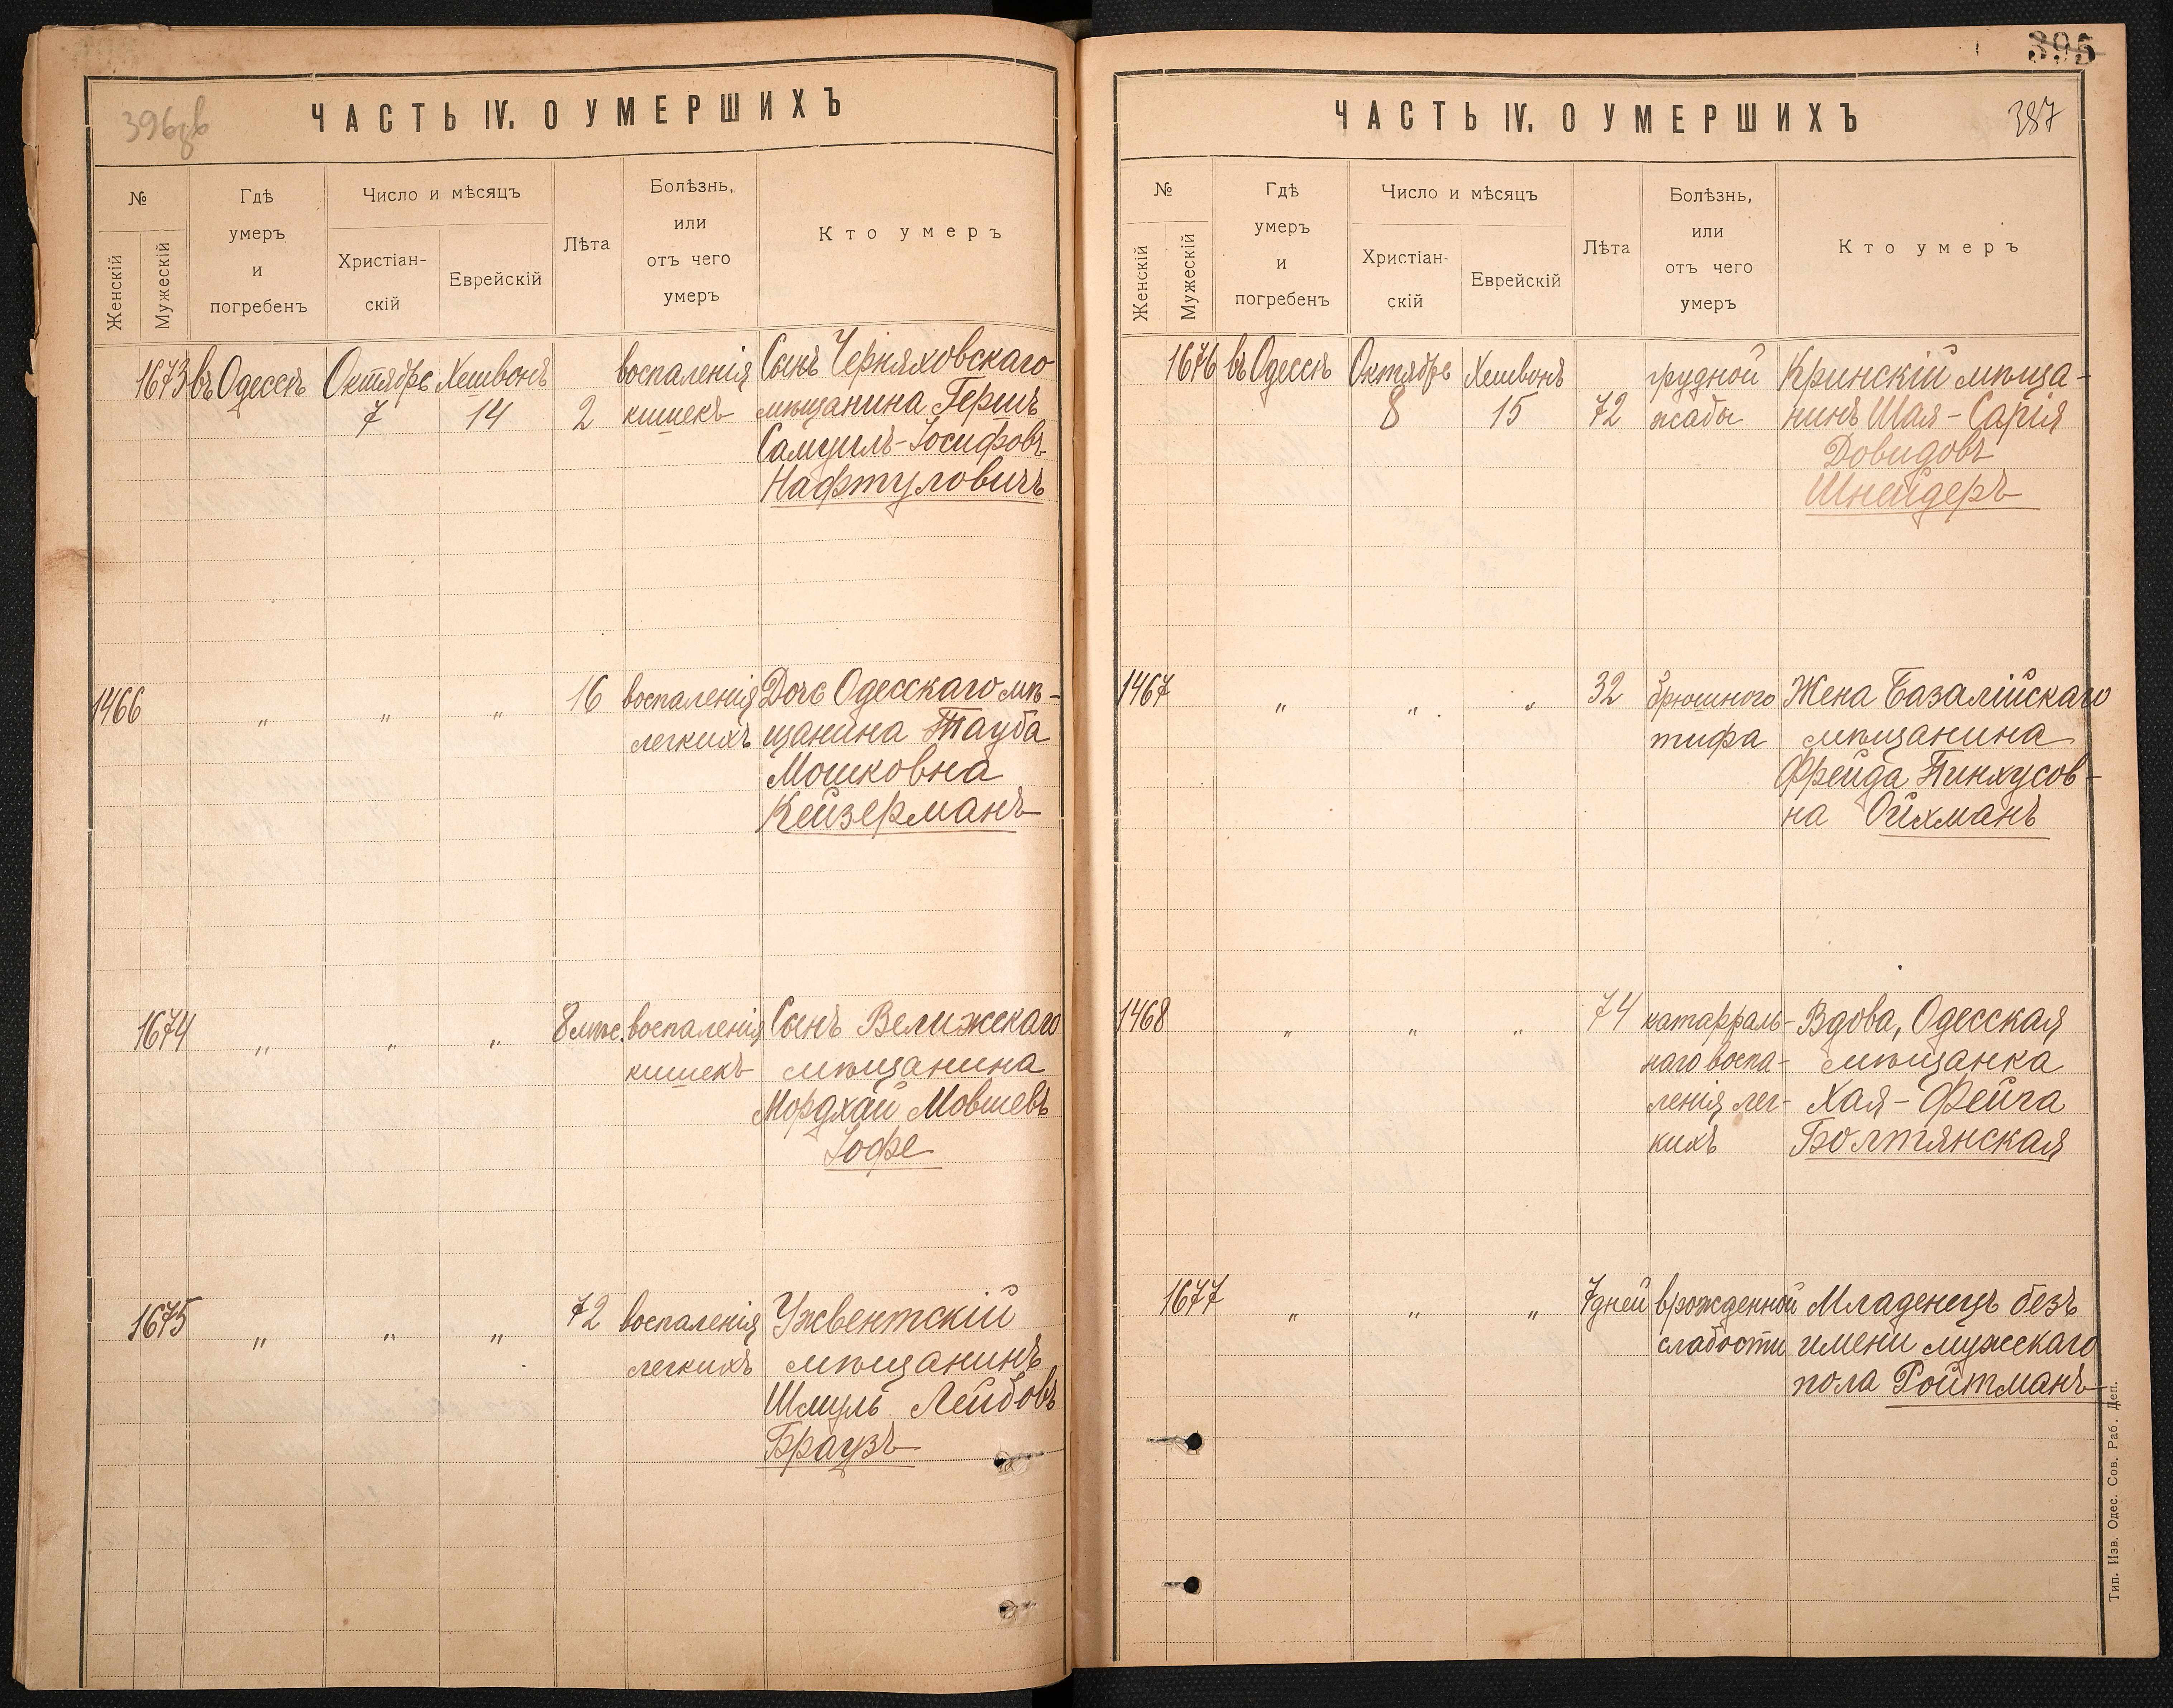 396 об
ЧАСТЬ IV. О УМЕРШИХЪ
№
Женскій
Мужескій
Гдѣ
умеръ
и
погребенъ
Число и мѣсяцъ
Христіан-
скій
Еврейскій
Лѣта
Болѣзнь,
или
отъ чего
умеръ
Кто умеръ
1673 въ Одессѣ Октябрь Хешвонъ воспаленія Сынъ Черняховскаго
7 14 2 кишекъ мѣщанина Гершъ
Самуилъ-Іосифовъ
Нафтуловичъ
1466 " " " 16 воспаленія Дочь Одесскаго мѣ-
легкихъ щанина Тауба
Мошковна
Кейзерманъ
1674 " " " 8 мѣс. воспаленія Сынъ Велижскаго
кишекъ мѣщанина
Мордхай Мовшевъ
Іофе
1675 " " " 72 воспаленія Ужвентскій
легкихъ мѣщанинъ
Шмуль Лейбовъ
Браузъ
395
387
ЧАСТЬ IV. О УМЕРШИХЪ
№
Женскій
Мужескій
Гдѣ
умеръ
и
погребенъ
Число и мѣсяцъ
Христіан-
скій
Еврейскій
Лѣта
Болѣзнь,
или
отъ чего
умеръ
Кто умеръ
1676 въ Одессѣ Октябрь Хешвонъ грудной Кринскій мѣща-
8 15 72 жабы нинъ Шая-Сарія
Довидовъ
Шнейдеръ
1467 " " " 32 брюшного Жена Базалійскаго
тифа мѣщанина
Фрейда Пинхусов-
на Ойхманъ
1468 " " " 74 катарраль- Вдова, Одесская
наго воспа- мѣщанка
ленія лег- Хая-Фейга
кихъ Болтянская
1677 " " " 7 дней врожденной Младенецъ безъ
слабости имени мужескаго
пола Ройтманъ
Тип. Изв. Одес. Сов. Раб. Деп.